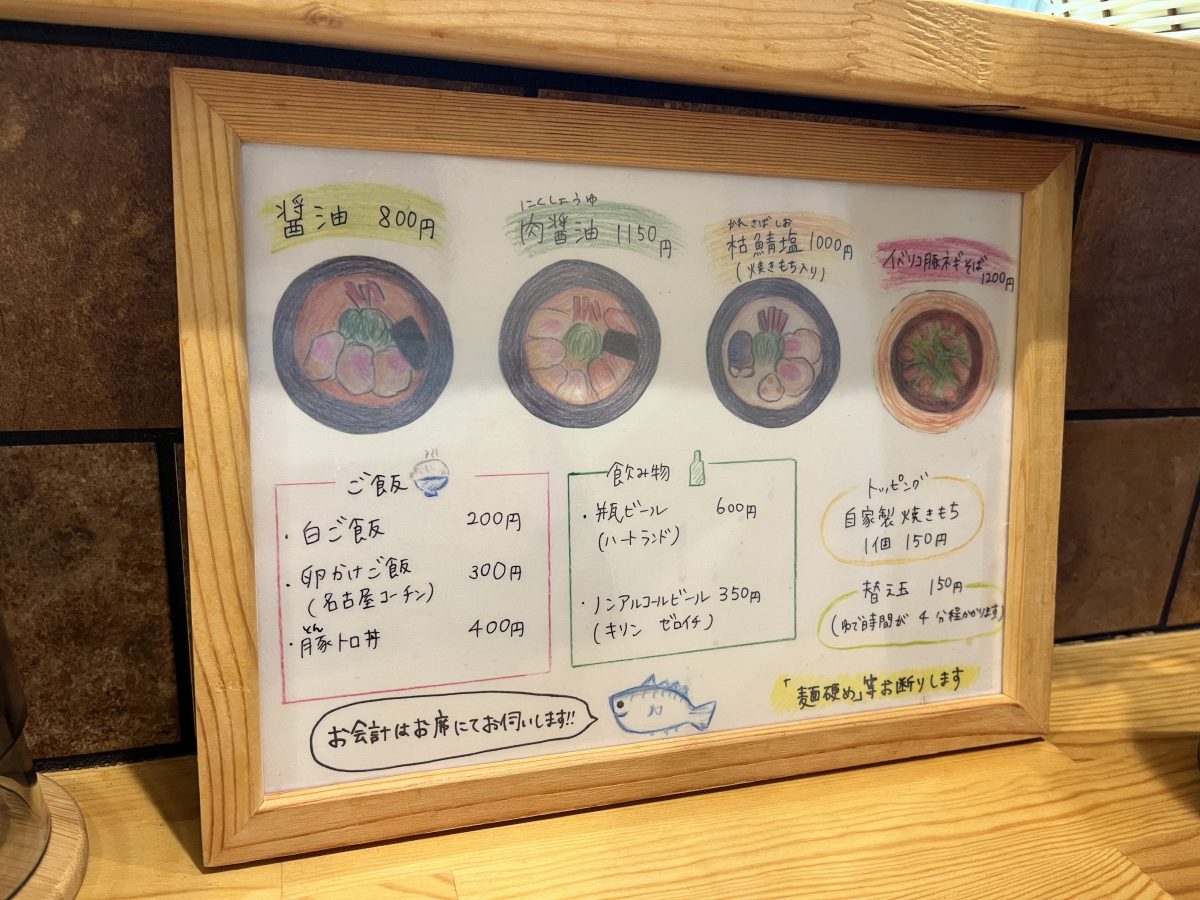 醤油 800円
にくしょうゆ
肉醤油 1150円
かれさばしお
枯鯖塩 1000円
(焼きもち入り)
イベリコ豚ネギそば
1200円
ご飯
・白ご飯 200円
・卵かけご飯 300円
(名古屋コーチン)
とん
・豚トロ丼 400円
飲み物
・瓶ビール 600円
(ハートランド)
・ノンアルコールビール 350円
(キリン ゼロイチ)
トッピング
自家製焼きもち
1個 150円
替え玉 150円
(ゆで時間が4分程かかります)
お会計はお席にてお伺いします!!
「麺硬め」等お断りします